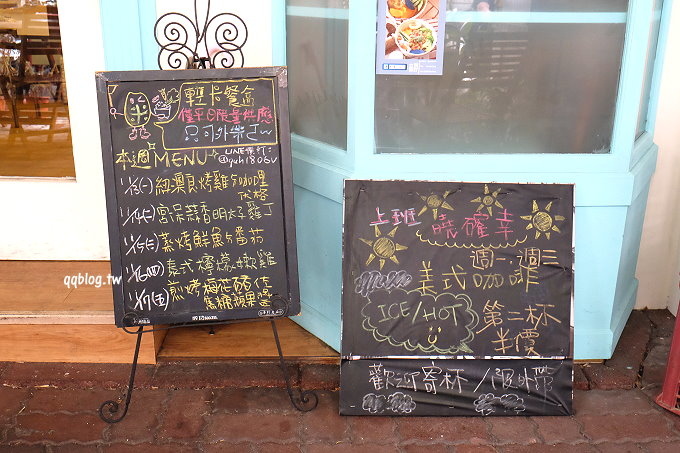 輕卡餐盒
僅平日限量供應
只可外帶
本週MENU
LINE預訂:
@guh1806v
11/13(一) 紐澳良烤雞&咖哩
伏格
11/14(二) 宮保蒜香明太子雞丁
11/15(三) 蒸烤鮮魚&番茄
11/16(四) 義式檸檬嫩雞
11/17(五) 煎烤梅花豬佐
焦糖蘋果醬
qqblog.tw
上班 曉確幸
週一-週三
美式咖啡
ICE/HOT
第二杯
半價
歡迎寄杯/限外帶